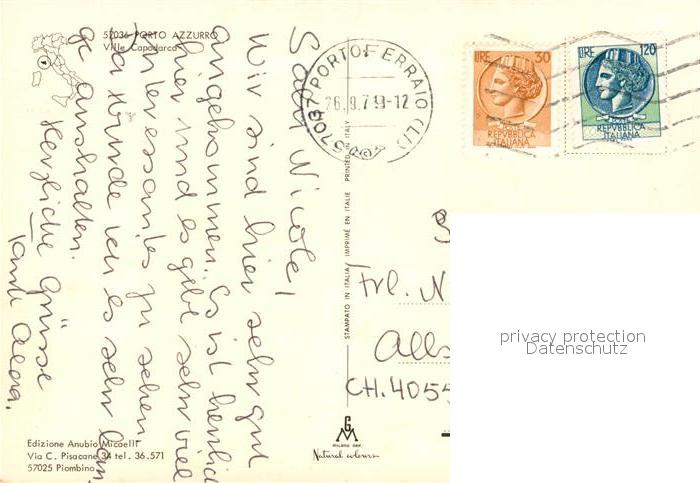 57036 PORTO AZZURRO
Ville Capodarco
Salü Nicole!
Wir sind hier sehr gut
angekommen. Es ist herrlich
hier und es gibt sehr viel
Interessantes zu sehen
Da würde ich es sehr lan
ge aushalten.
Herzliche Grüsse
Tante
Edizione Anubio Micaelli
Via C. Pisacane 34 tel. 36.571
57025 Piombino
STAMPATO IN ITALIA IMPRIMÉ EN ITALIE PRINTED IN ITALY
GM
MILANO DEP.
Natural colours
57037 PORTOFERRAIO (LI)
26.9.7 -12
LIRE 30
POSTE
REPVBBLICA
ITALIANA
LIRE 120
POSTE
REPVBBLICA
ITALIANA
Frl. N
Alls
CH. 4055
privacy protection
Datenschutz